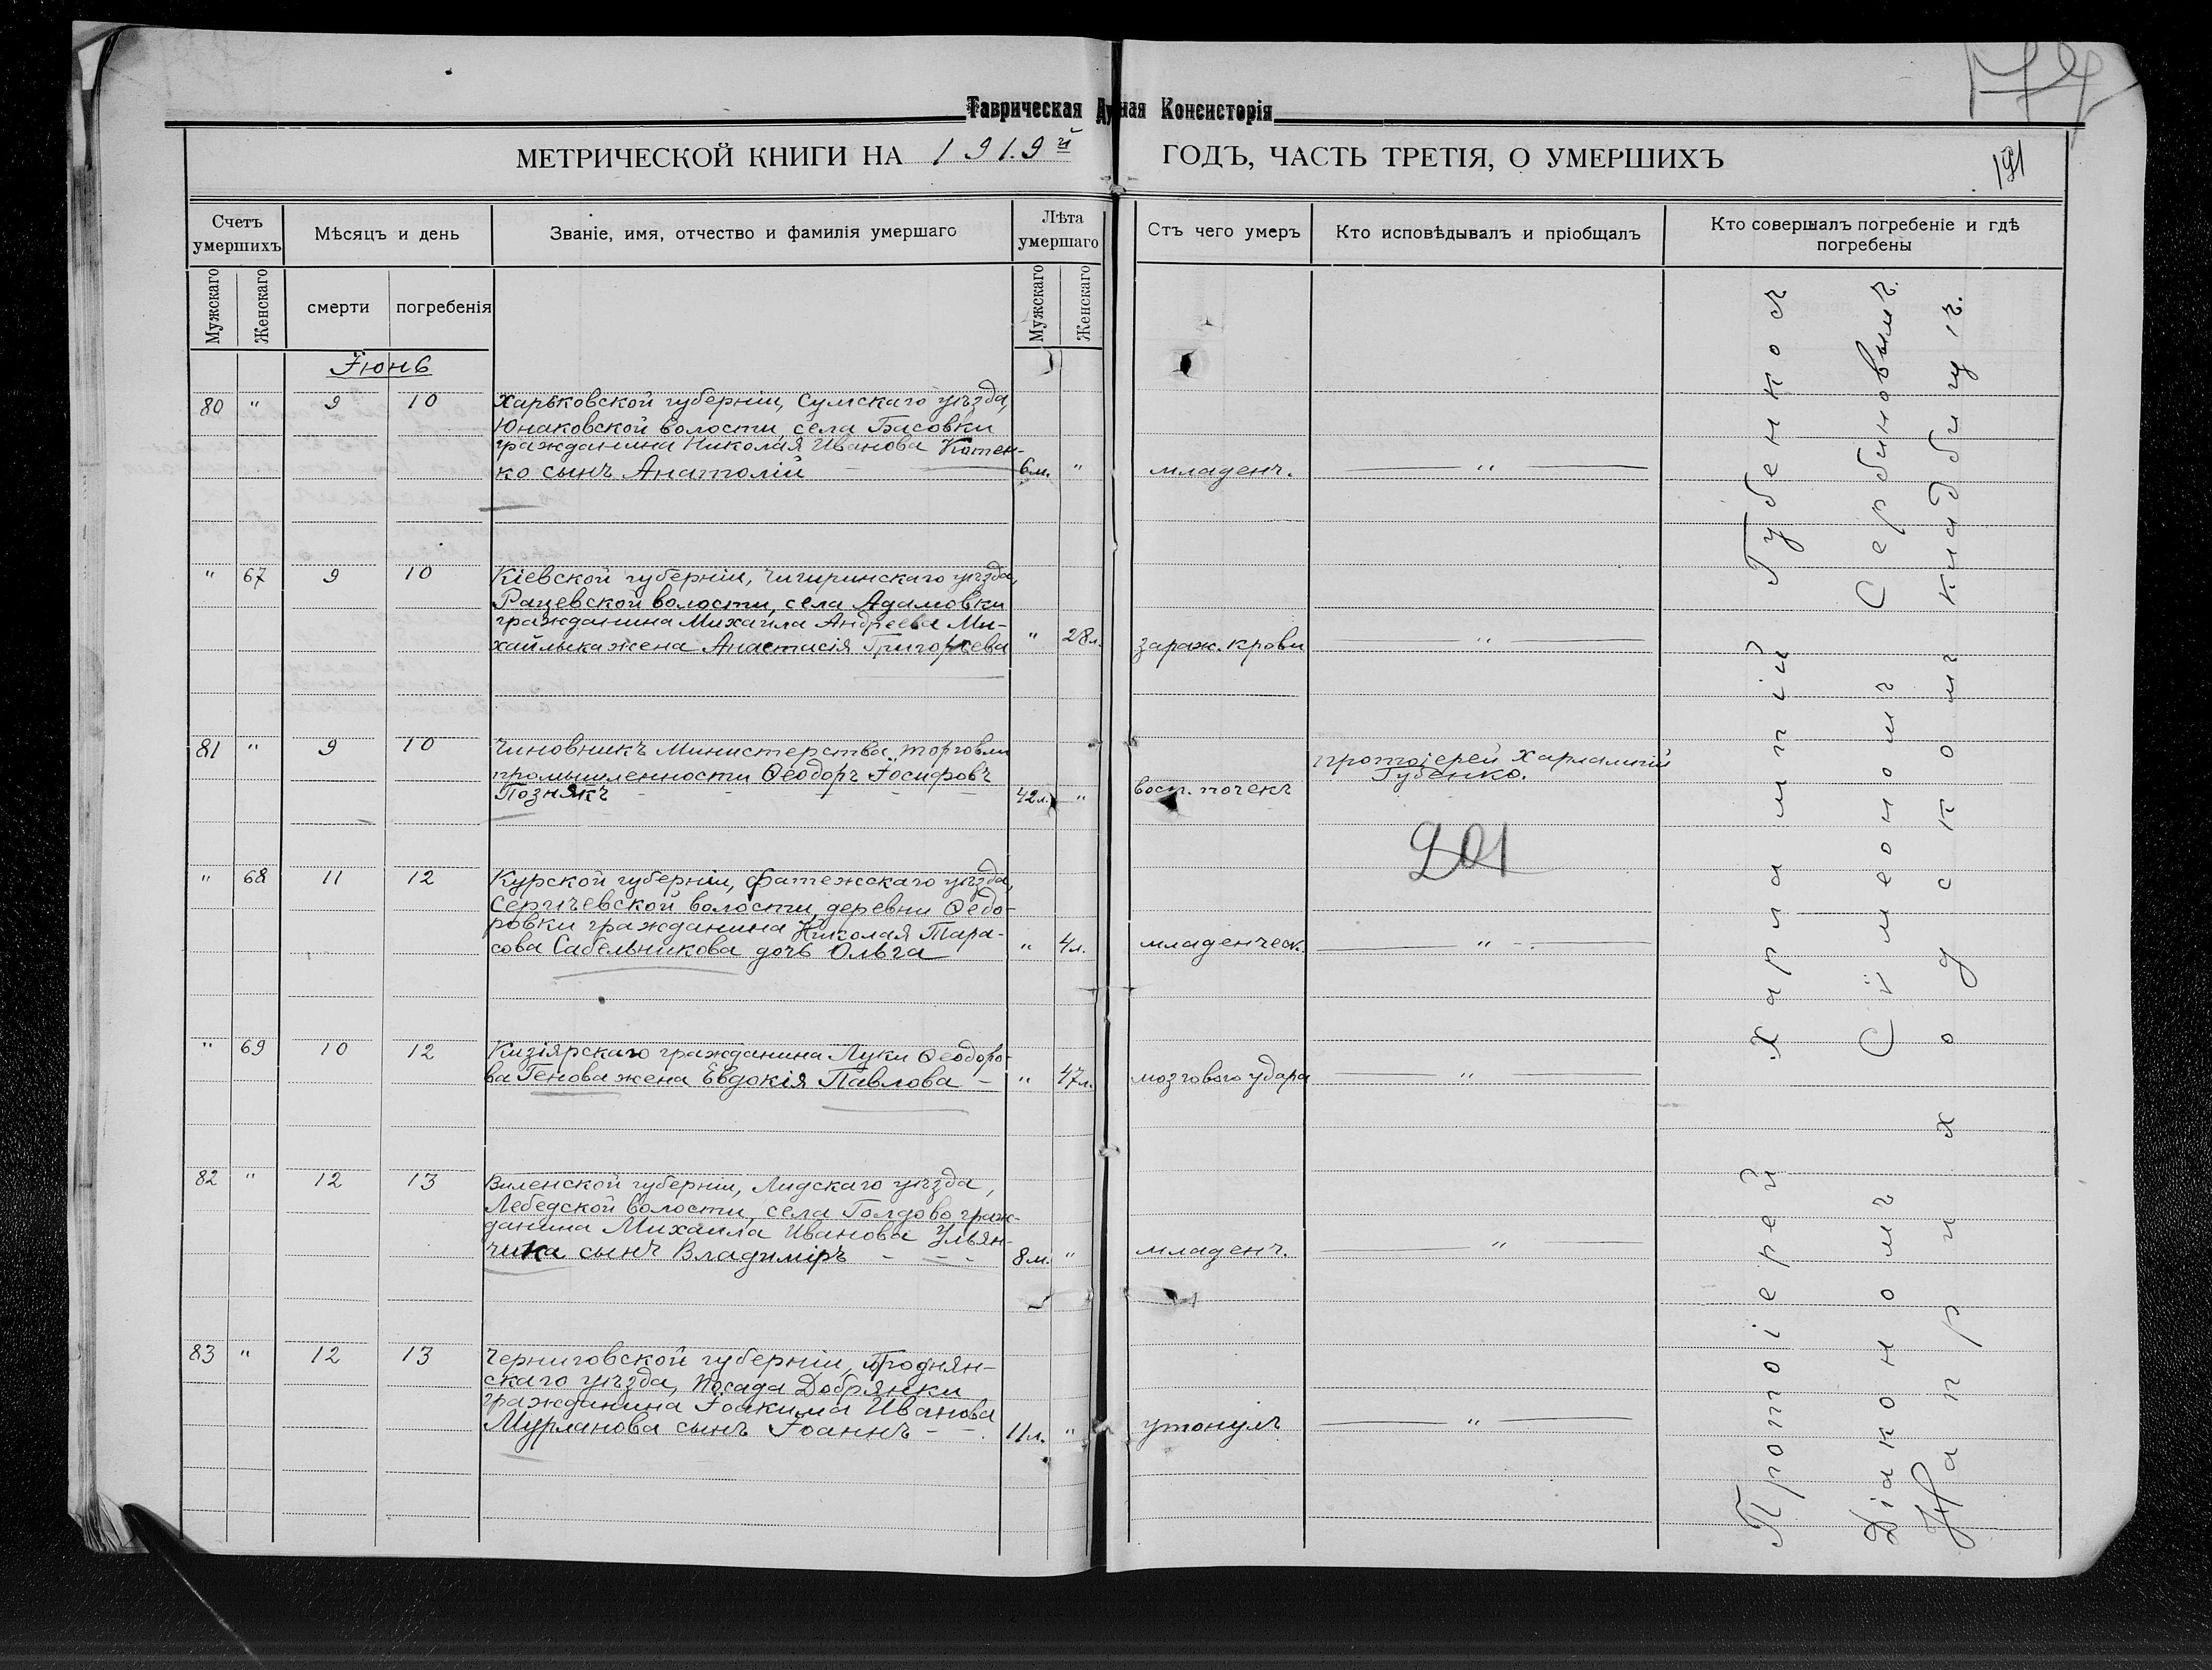 Таврическая Духная Консисторія
МЕТРИЧЕСКОЙ КНИГИ НА 1919й ГОДЪ, ЧАСТЬ ТРЕТІЯ, О УМЕРШИХЪ
191
Счетъ умершихъ
Мѣсяцъ и день
Званіе, имя, отчество и фамилія умершаго
Лѣта умершаго
Стъ чего умеръ
Кто исповѣдывалъ и пріобщалъ
Кто совершалъ погребеніе и гдѣ погребены
Мужскаго
Женскаго
смерти
погребенія
Мужскаго
Женскаго
Іюнь
80 " 9 10 Харьковской губерніи, Сумскаго уѣзда,
Юнаковской волости, села Басовки
гражданина Николая Иванова Котен-
ко сынъ Анатолій 6м. " младенч. "
" 67 9 10 Кіевской губерніи, Чигиринскаго уѣзда,
Рацевской волости, села Адамовки
гражданина Михаила Андреева Ми-
хайлыка жена Анастасія Григорьева " 28л. зараж. крови "
81 " 9 10 Чиновникъ Министерства торговли
промышленности Ѳеодоръ Іосифовъ
Познякъ 42л. " восп. почекъ Протоіерей Харлампій
Губенко.
201
" 68 11 12 Курской губерніи, Фатежскаго уѣзда,
Сергіевской волости, деревни Ѳедо-
ровки гражданина Николая Тара-
сова Сабельникова дочь Ольга " 4л. младенческ. "
" 69 10 12 Кизіярскаго гражданина Луки Ѳеодоро-
ва Генова жена Евдокія Павлова " 47л. мозгового удара "
82 " 12 13 Виленской губерніи, Лидскаго уѣзда,
Лебедской волости, села Голдово граж-
данина Михаила Иванова Ульян-
чика сынъ Владиміръ 8м. " младенч. "
83 " 12 13 Черниговской губерніи, Гроднян-
скаго уѣзда, посада Добрянки
гражданина Іоакима Иванова
Мурланова сынъ Іоаннъ 11л. " утонулъ "
Протоіерей Харлампій Губенко съ
Діакономъ Сѵмеономъ Сербиновымъ.
На приходскомъ кладбищѣ.